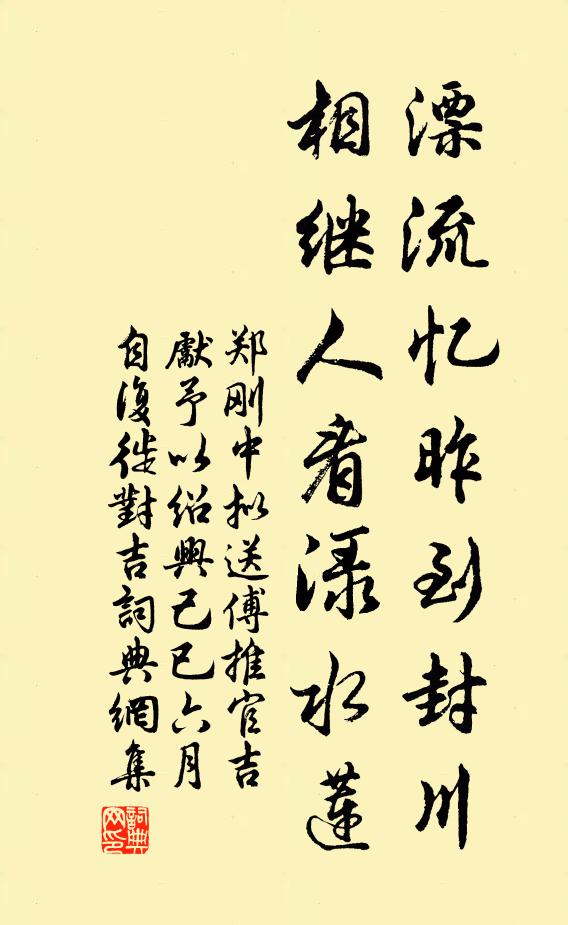 漂流忆昨到封川
相继人看渌水莲
郑刚中拟送傅推官吉
獻予以绍興己巳六月
自復徙對吉詞典網集
詞典網印